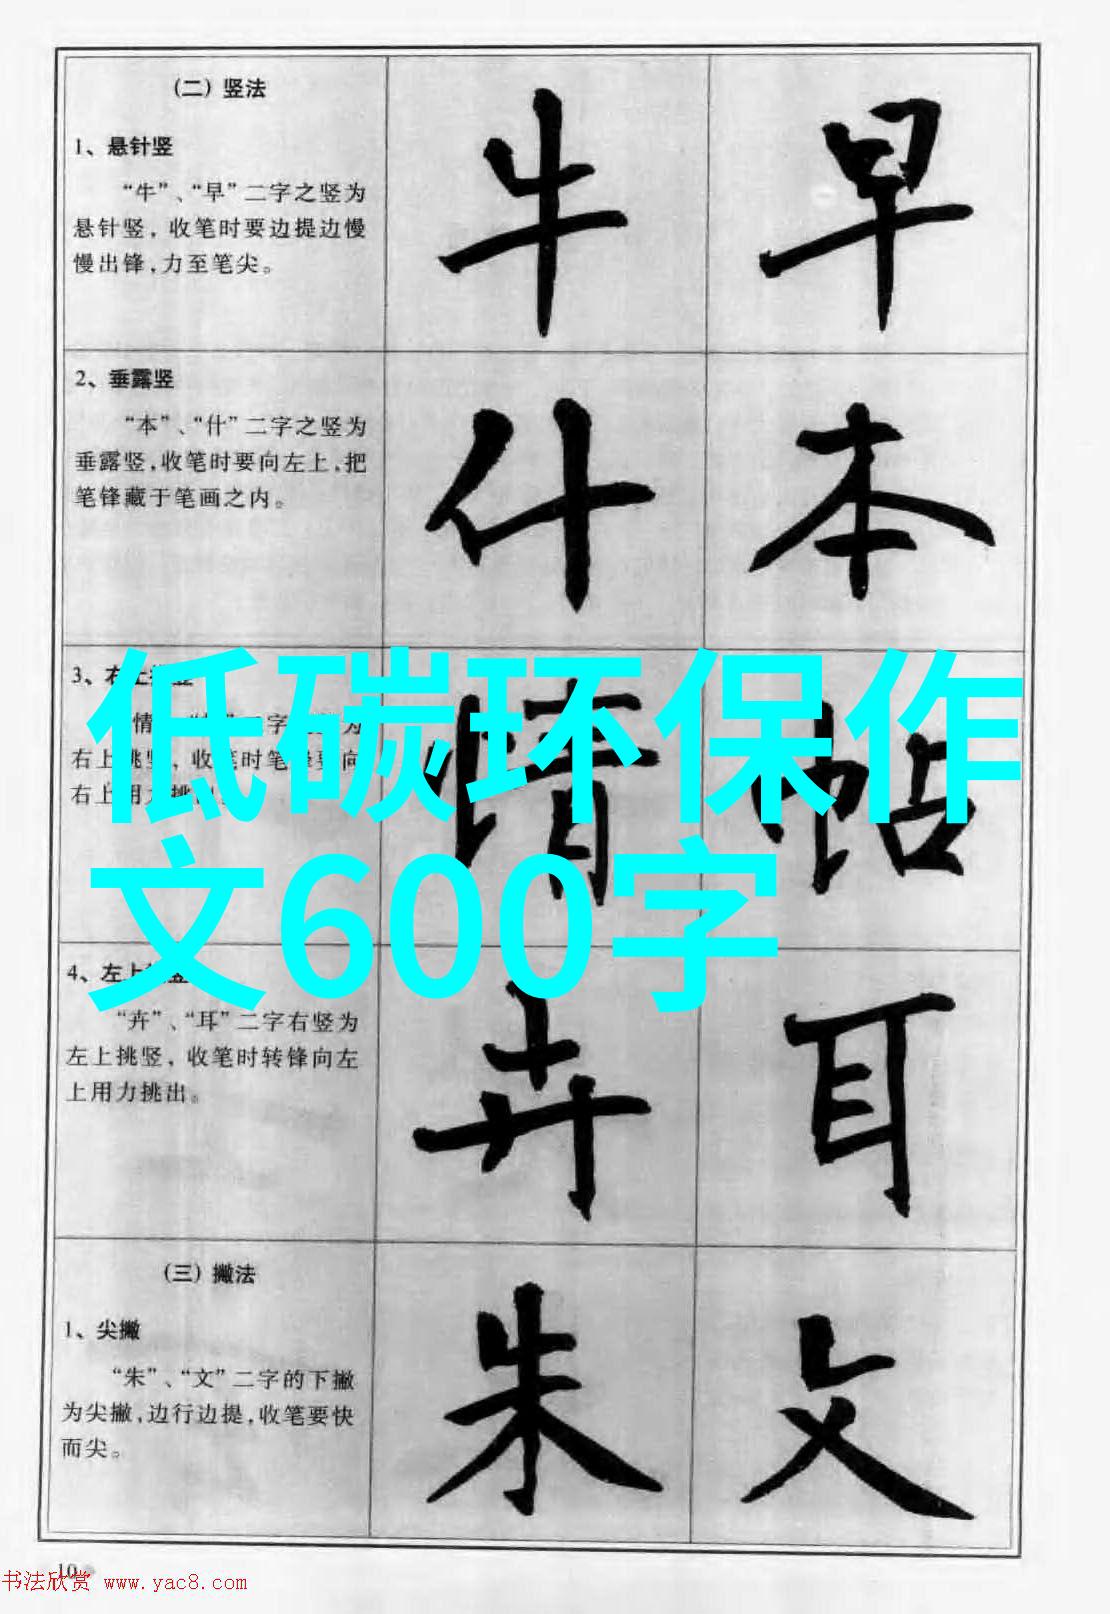 (二) 竖法
1、悬针竖
“牛”、“早”二字之竖为
悬针竖，收笔时要边提边慢
慢出锋，力至笔尖。
牛 早
2、垂露竖
“本”、“什”二字之竖为
垂露竖，收笔时要向左上，把
笔锋藏于笔画之内。
什 本
低碳环保作
文600字
3、右上
情 字 为
右上挑竖，收笔时笔 要向
右上用力挑出
情 帖
4、左上
“卉”、“耳”二字右竖为
左上挑竖，收笔时转锋向左
上用力挑出。
卉 耳
(三) 撇法
1、尖撇
“朱”、“文”二字的下撇
为尖撇，边行边提，收笔要快
而尖。
朱 文
10
书法欣赏 www.yac8.com